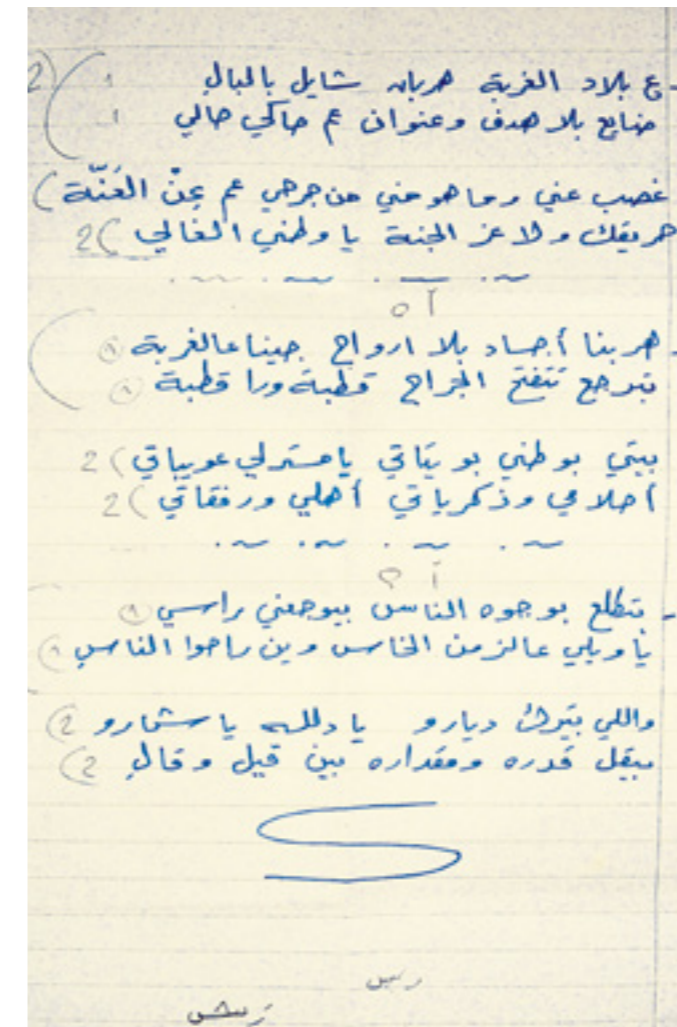 - ع بلاد الغربة هربان شايل بالبال ١ (2
ضايع بلا هدف وعنوان عم حاكي حالي ١
غصب عني وما هو مني من جرحي عم بعِنّ العَنّة (
حريقك ولا عز الجنة يا وطني الغالي (2
آه
- هربنا أجساد بلا ارواح جينا عالغربة
تبرجع تتفتح الجراح قطبة ورا قطبة
بيتي بوطني بويباتي يا مسترلي عويباتي (2
أحلامي وذكرياتي أهلي ورفقاتي (2
آه
- بتطلع بوجوه الناس بيوجعني راسي
يا ويلي عالزمن الخاسس وين راحوا الناس
واللي بيترك ديارو يا دلله يا شمارو (2
بيقل قدره ومقداره بين قيل وقال (2